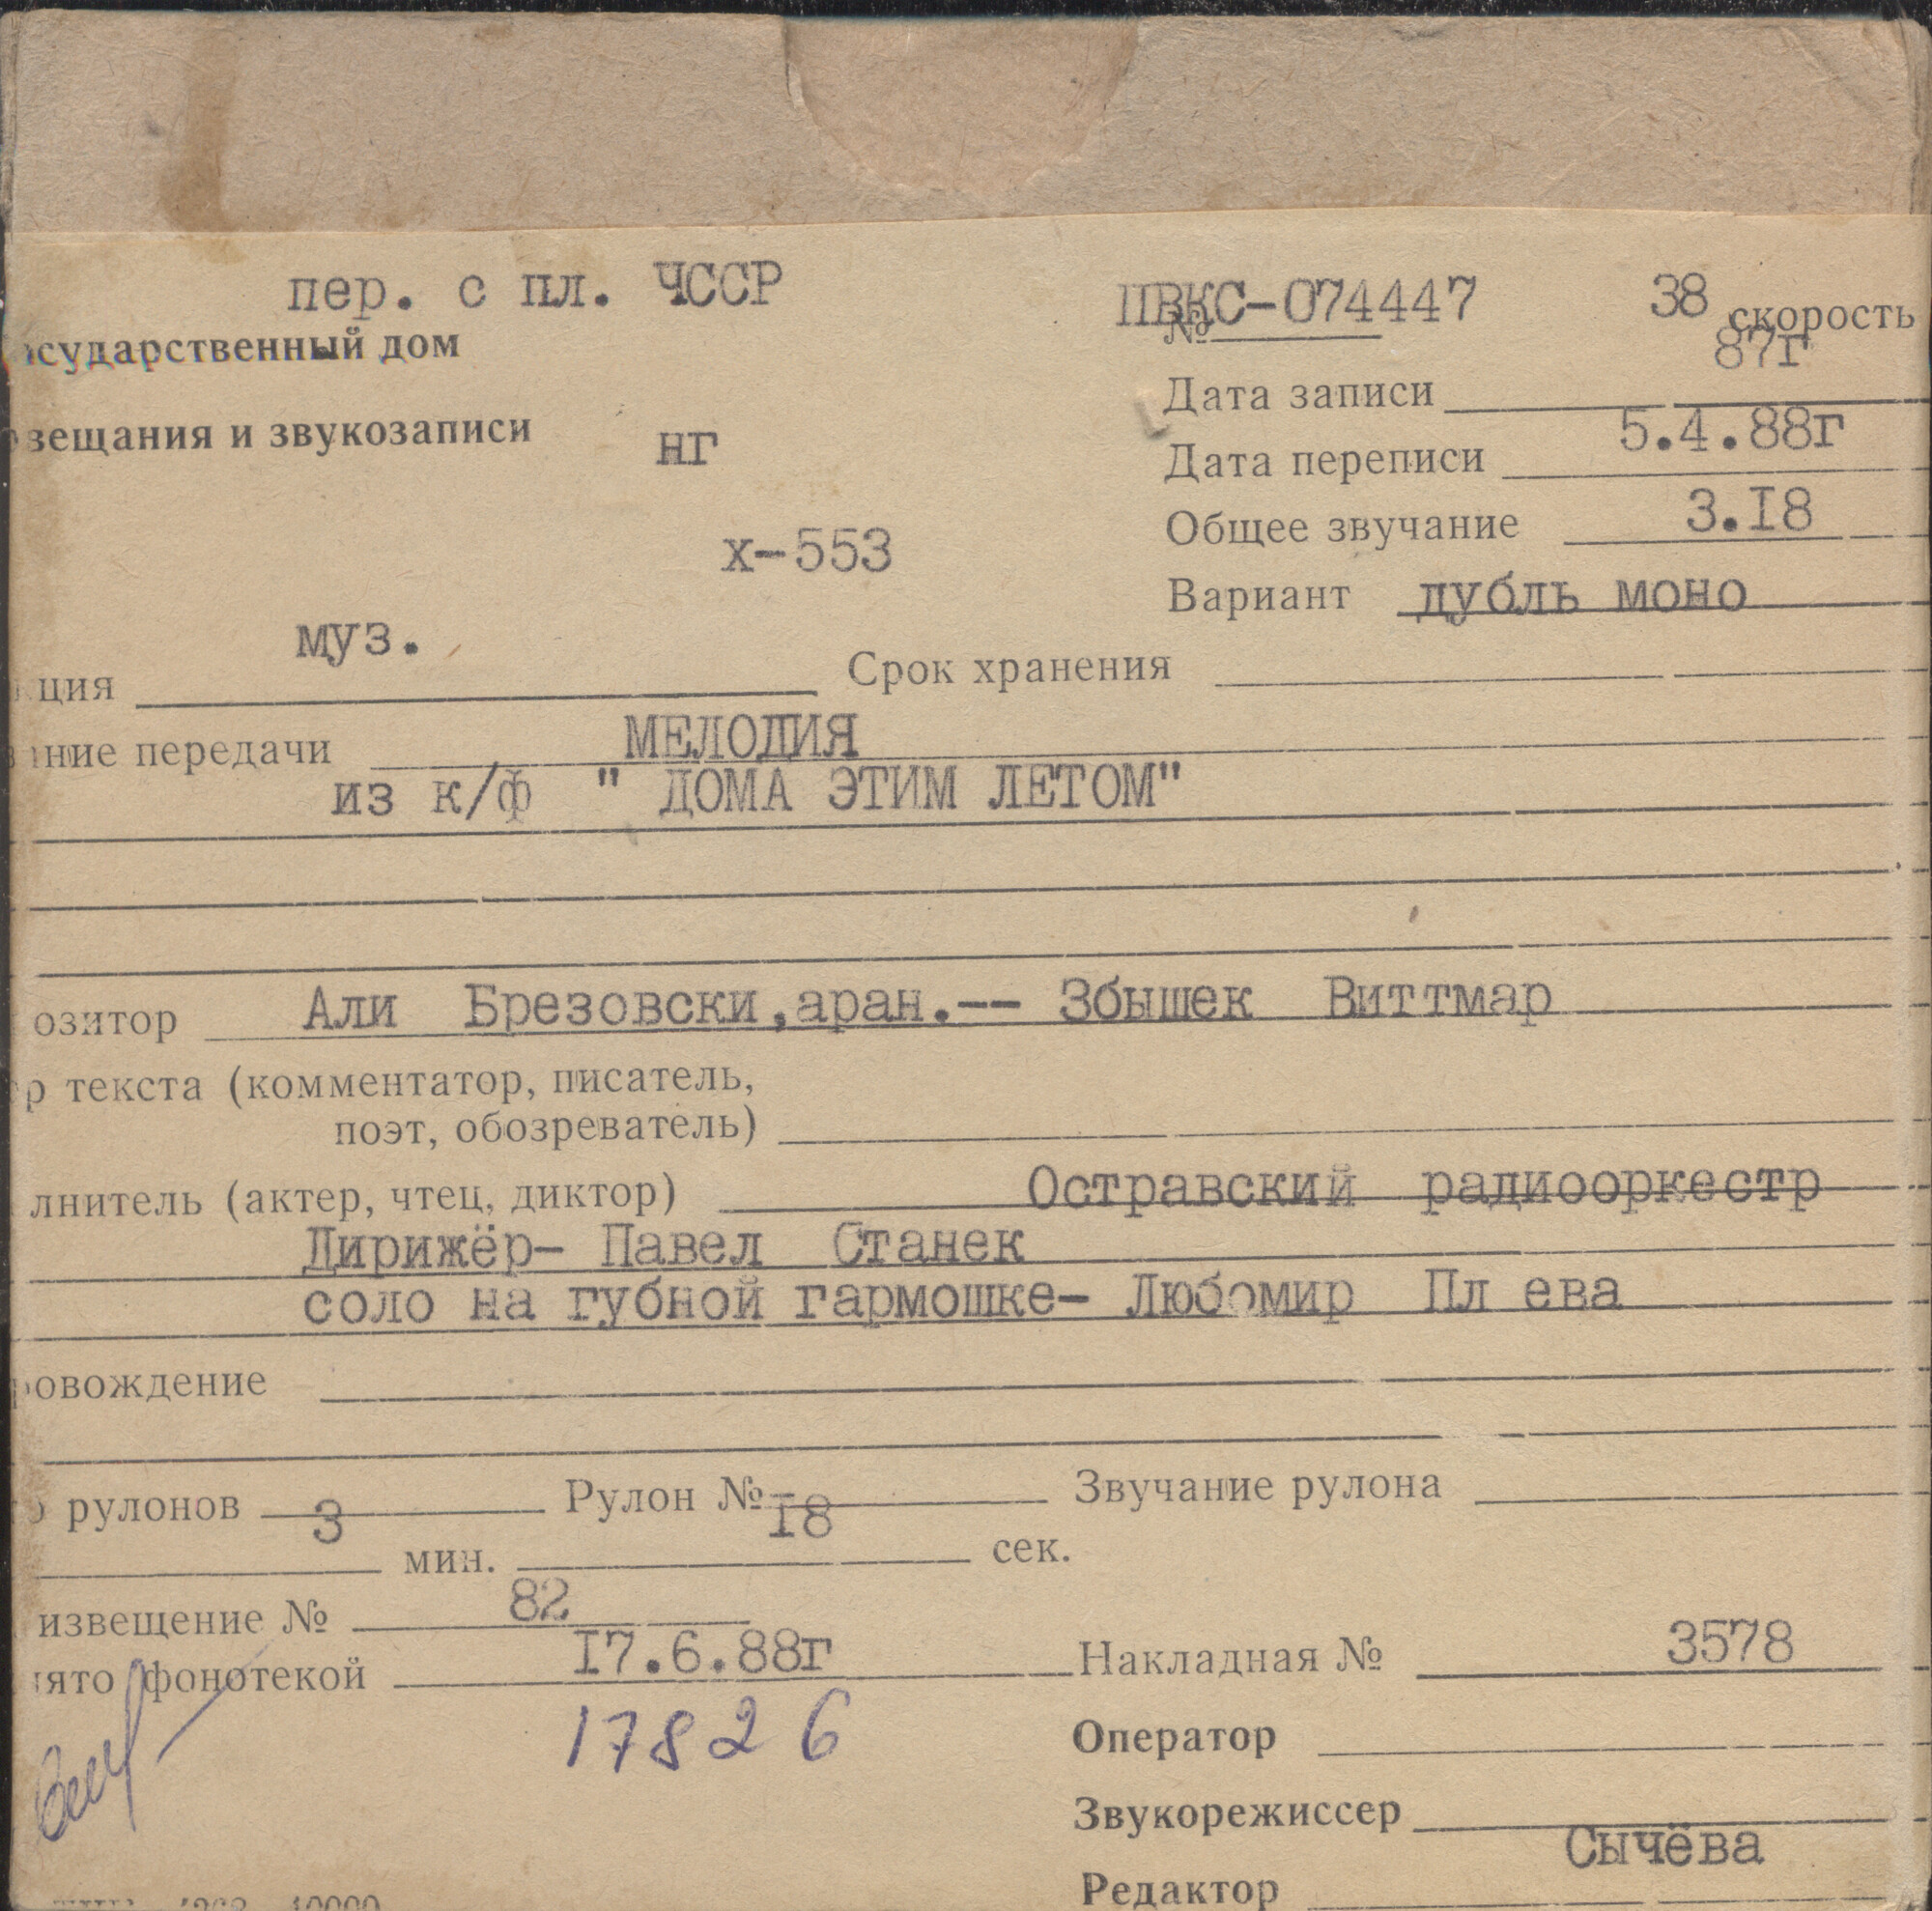 пер. с пл. ЧССР
ПВКС-074447
38 скорость
№
осударственный дом
87г
Дата записи
вещания и звукозаписи
нг
5.4.88г
Дата переписи
х-553
Общее звучание 3.I8
Вариант дубль моно
муз.
кция Срок хранения
вание передачи МЕЛОДИЯ
из к/ф " ДОМА ЭТИМ ЛЕТОМ"
озитор Али Брезовски,аран.-- Збышек Виттмар
ор текста (комментатор, писатель,
поэт, обозреватель)
лнитель (актер, чтец, диктор) Остравский радиооркестр
Дирижёр- Павел Станек
соло на губной гармошке- Любомир Пл ева
ровождение
о рулонов Рулон № Звучание рулона
3 мин. I8 сек.
извещение № 82
нято фонотекой I7.6.88г
Накладная № 3578
17826
Оператор
Звукорежиссер
Сычёва
Редактор